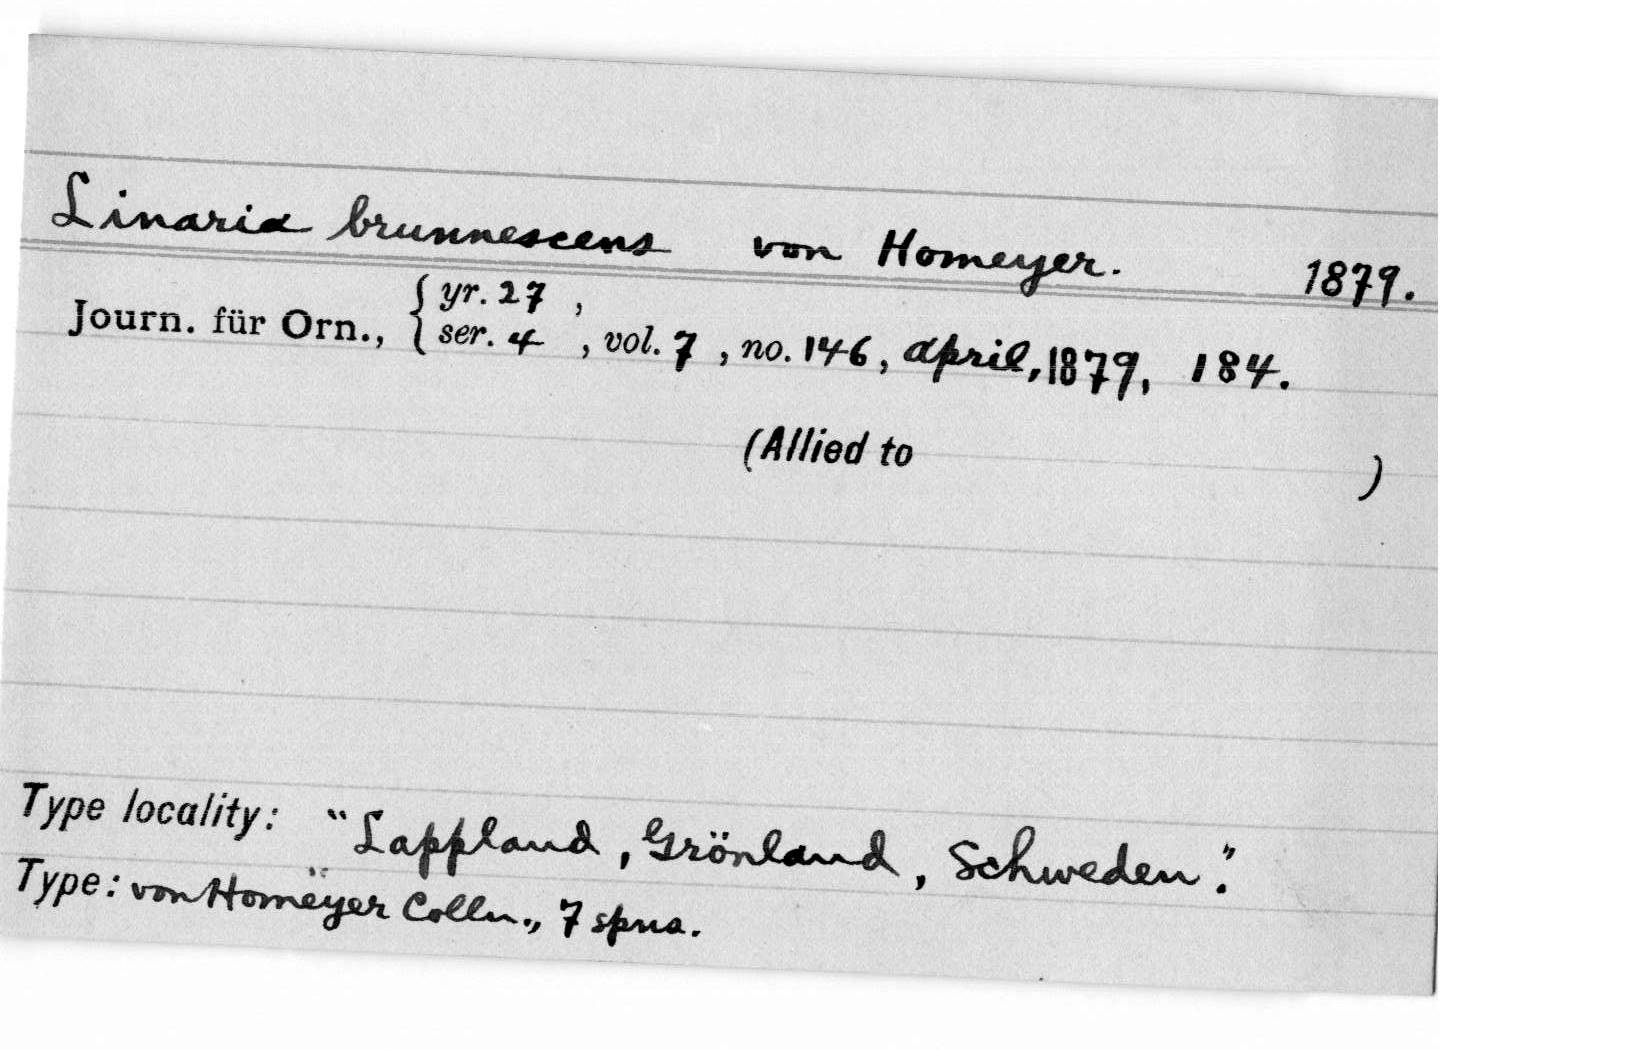 Linaria brunnescens von Homeyer. 1879.
Journ. für Orn., { yr. 27 ,
ser. 4 , vol. 7 , no. 146, April, 1879, 184.
(Allied to )
Type locality: "Lappland, Grönland, Schweden".
Type: von Homeyer Colln., 7 spns.